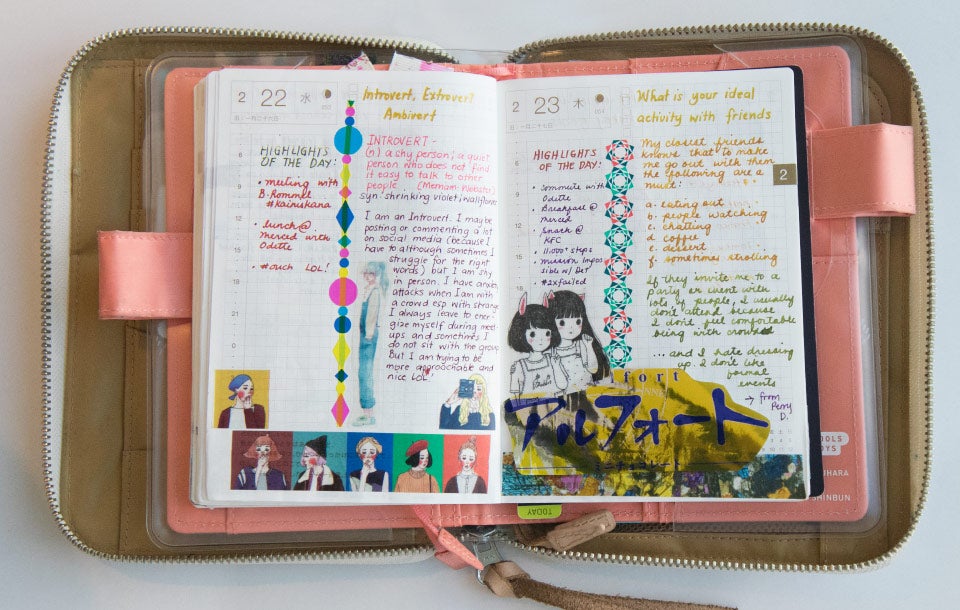 2 22 水
Introvert, Extrovert
Ambivert
HIGHLIGHTS
OF THE DAY:
• meeting with
B. Rommel
#kainukana
• lunch @
Merced with
Odette
• #ouch LOL!
INTROVERT -
(n) a shy person; a quiet
person who does not find
it easy to talk to other
people (Merriam-Webster)
syn: shrinking violet, wallflower
I am an Introvert. I may be
posting or commenting a lot
on social media (because I
have to although sometimes I
struggle for the right
words) but I am shy
in person. I have anxiety
attacks when I am with
a crowd esp with strange
I always leave to ener-
gize myself during meet-
ups and sometimes I
do not sit with the group
But I am trying to be
more approachable and
nice LOL
2 23 木
What is your ideal
activity with friends
HIGHLIGHTS
OF THE DAY:
• Commute with
Odette
Breakfast @
Merced
• Snack @
KFC
• 11,000+ steps
• Mission Impos
sible w/ Det
• #2xfailed
My closest friends
knows that to make
me go out with them
the following are a
must:
a. eating out
b. people watching
c. chatting
d. coffee
e. dessert
f. sometimes strolling
If they invite me to a
party or event with
lots of people, I usually
don't attend because
I don't feel comfortable
being with crowd
... and I hate dressing
up. I don't like
formal
events
→ from
Perry
D.
2
fort
アルフォート
TODAY
OOLS
OYS
UHARA
SHINBUN